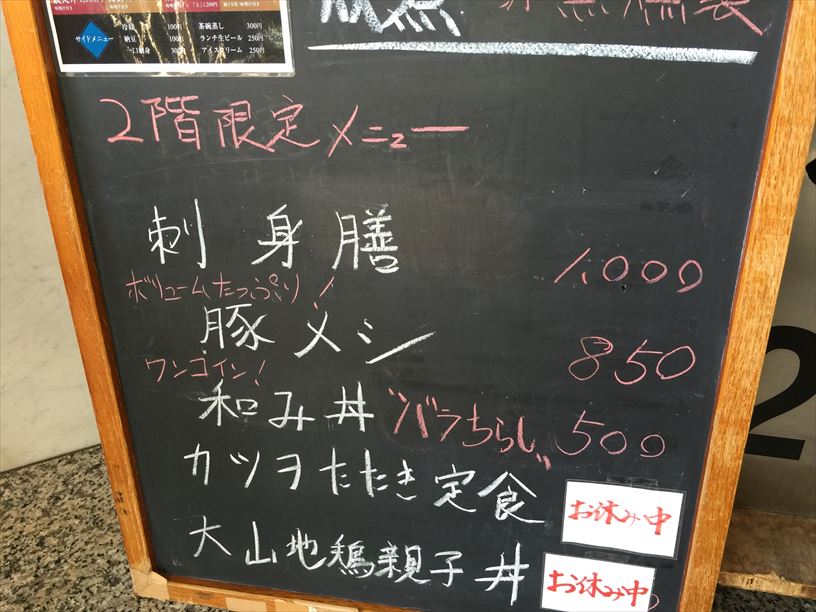 サイドメニュー
冷奴 100円 茶碗蒸し 300円
納豆 100円 ランチ生ビール 250円
一口刺身 300円 アイスクリーム 250円
2階限定メニュー
刺身膳 1,000
ボリュームたっぷり!
豚メシ 850
ワンコイン!
和み丼 "バラちらし" 500
カツヲたたき定食 お休み中
大山地鶏親子丼 お休み中
2